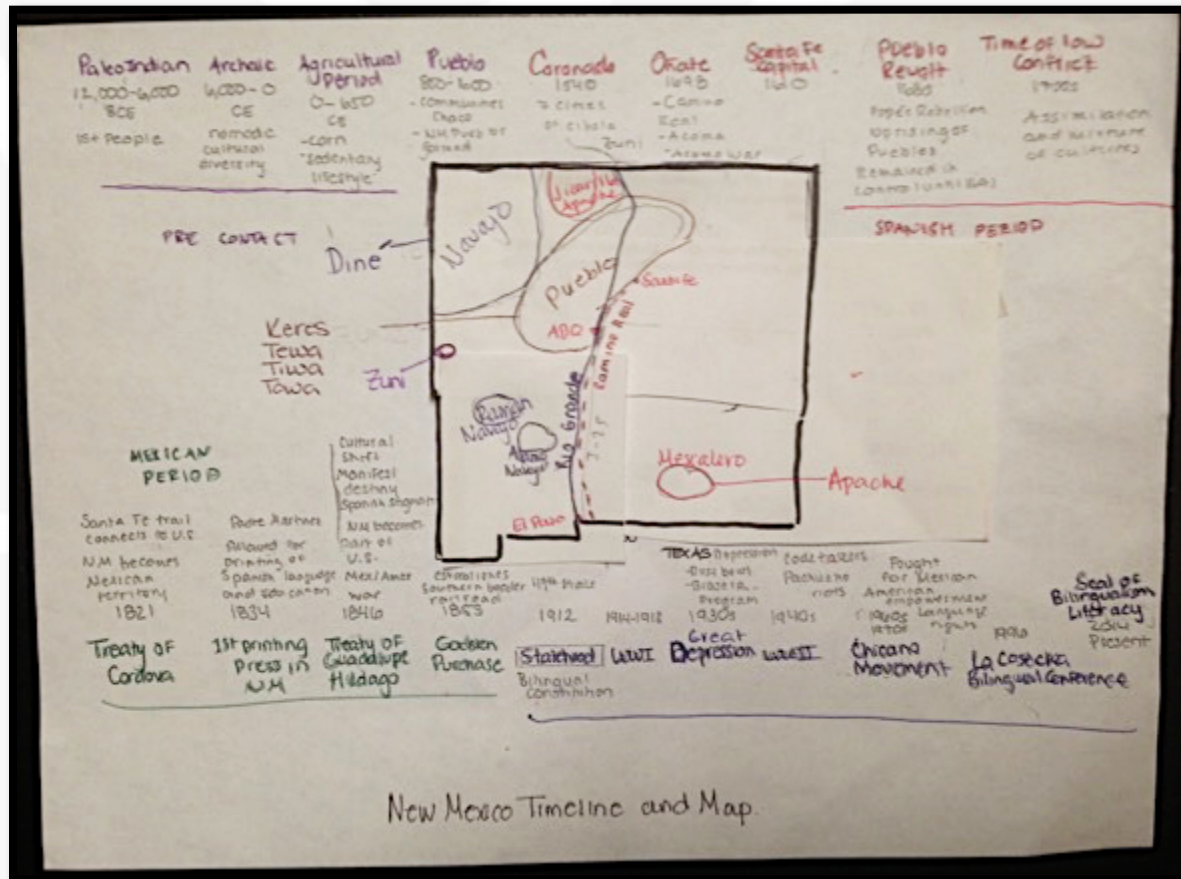 PaleoIndian
12,000-6,000
BCE
1st People
Archaic
6,000-0
CE
nomadic
cultural
diversity
Agricultural
Period
0-650
CE
-corn
-sedentary
lifestyle
Pueblo
-communities
Chaco
Coronado
1540
7 cities
of cibola
Oñate
-Camino
Real
-Acoma
-Acoma war
Zuni
Santa Fe
Capital
1610
Pueblo
Revolt
1680
uprising of
Pueblos
Remained in
control until
Time of low
Conflict
1700s
Assimilation
and mixture
of cultures
PRE CONTACT
SPANISH PERIOD
Dine
Navajo
Jicarilla
Apache
Pueblo
Santa Fe
ABQ
Camino Real
Keres
Tewa
Tiwa
Towa
Zuni
Ramah
Navajo
Navajo
Rio Grande
I-25
Mescalero
Apache
El Paso
TEXAS
MEXICAN
PERIOD
Santa Fe trail
connects to U.S.
NM becomes
Mexican
territory
1821
Treaty of
Cordova
Padre Martinez
Allowed for
printing of
Spanish language
and education
1834
1st printing
Press in
NM
Cultural
Shift
Manifest
destiny
Spanish
NM becomes
Part of
U.S.
Mex/Amer
war
1846
Treaty of
Guadalupe
Hildago
establishes
Southern border
railroad
1853
Gadsen
Purchase
47th State
1912
Statehood
Bilingual
constitution
1914-1918
WWI
Depression
-Dust bowl
-Bracero
Program
1930s
Great
Depression
Code talkers
Pachuco
riots
1940s
WWII
Fought
for Mexican
American
empowerment
Language
rights
1960s
1970s
Chicano
Movement
La Cosecha
Bilingual Conference
Seal of
Bilingualism
Literacy
2014
Present
New Mexico Timeline and Map.